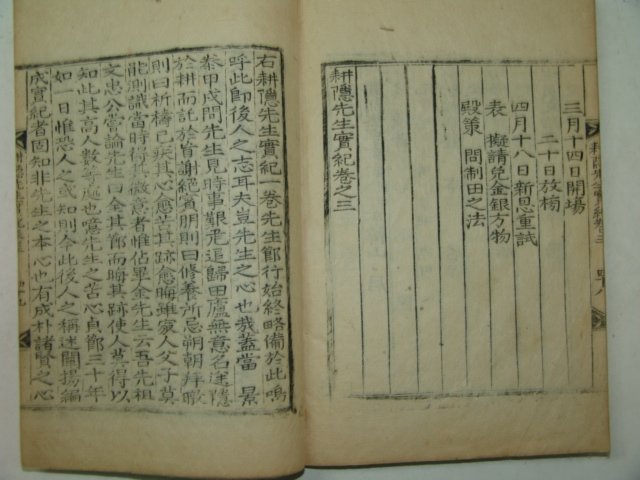 三月十四日開場
二十日放榜
四月十八日新恩重試
表 擬請免金銀方物
殿策 問制田之法
耕隱先生實紀卷之三
右耕隱先生實紀一卷先生節行始終略備於此嗚
呼此卽後人之志耳夫豈先生之心也哉蓋當 景
泰甲戌間先生見時事艱危退歸田廬無意名途隱
於耕而託於盲謝絕賓朋則曰修養所忌朔朝拜暇
則曰祈禱已疾其心愈苦其跡愈晦雖家人父子莫
能測識當時得其微意者惟佔畢金先生云吾先祖
文忠公嘗論先生曰全其節而晦其跡使人莫得以
知此其高人數等處也噫先生之苦心貞節三十年
如一日惟恐人之或知則今此後人之稱述闡揚編
成實紀者固知非先生之本心也有成朴諸賢之心